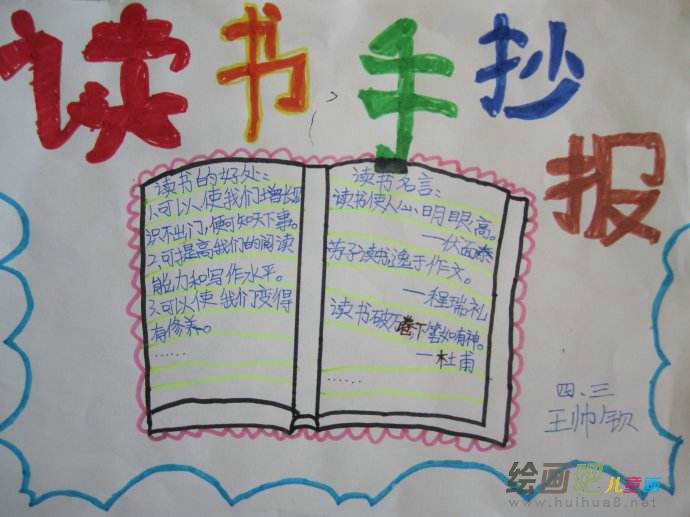 读书手抄报
读书的好处：
1.可以使我们增长见
识不出门，便可知天下事。
2.可提高我们的阅读
能力和写作水平。
3.可以使我们变得
有修养。
……
读书名言：
读书使人心明眼高。
—伏
劳于读书逸于作文。
—程瑞礼
读书破万卷下笔如有神。
—杜甫
……
四、三
王帅钦
绘画吧儿童画
www.huihua8.net